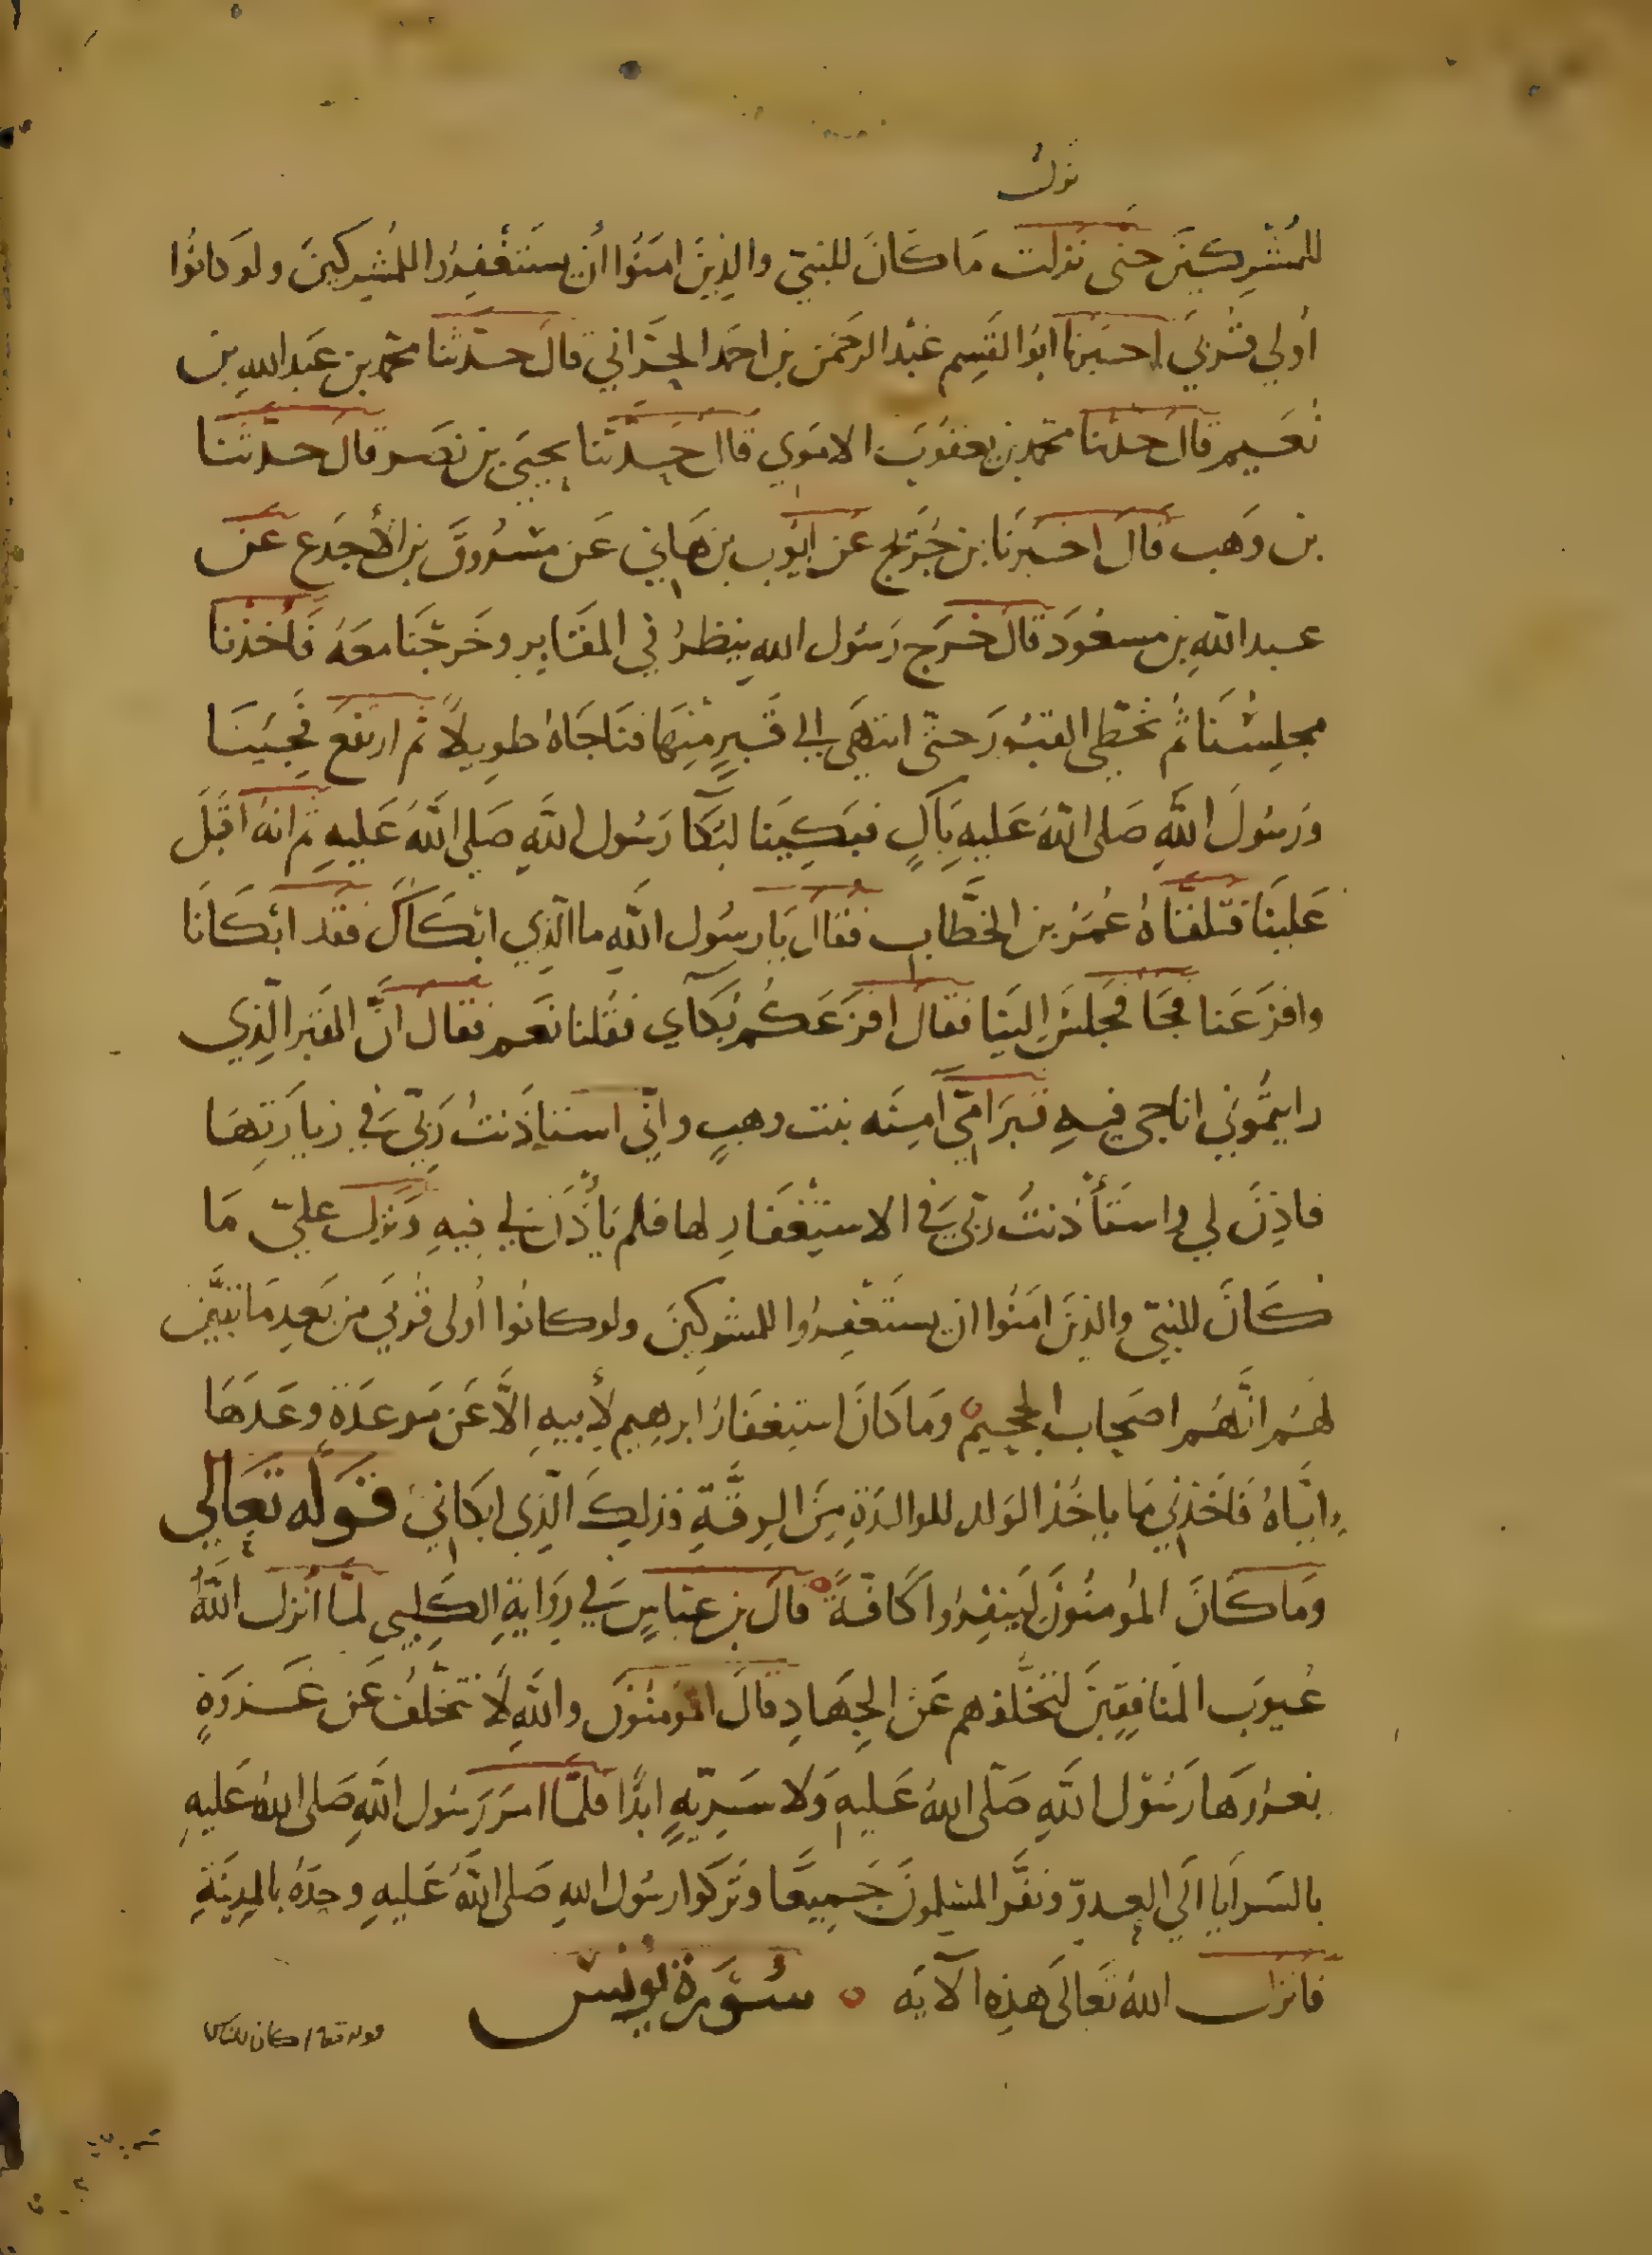 للمُشْرِكِينَ حتى نزلت مَا كَانَ للنبيّ والذِينَ امَنُوا أن يستَغْفِرُوا للمُشرِكينَ ولو كانُوا
أولي قُربَي اخبرنا ابُو القَسِم عَبْد الرحمَن بن احمد الحَرّاني قال حدّثنا محمّد بن عَبد الله بن
نُعَيم قالَ حدثنا محمّد بن يعقوبَ الاموي قال حَدّثنا يحيَى بن نصر قال حدّثنَا
بن وَهب قال اخبرَنا بن جُرَيج عَن ايوب بن هَاني عَن مسْرُوق بن الأجدَع عَن
عبد اللهِ بن مسعُود قال خرَج رَسُول اللهِ ينظرُ في المقَابِر وخَرجْنَا معَهُ فَأخذنا
مجلِسْنَا ثُم تخطّى القبُورَ حتّى انتهَى الي قَبرٍ مِنهَا فنَاجَاهُ طوِيلًا ثم ارتفعَ نحِيبُ
وَرسُولَ اللَّهِ صَلى اللهُ عَليهِ بَاكٍ فبَكِينَا لبُكا رَسُول اللَّهِ صَلي اللَّهُ عَليهِ ثم انهُ اقبَلَ
عَلَينَا فتلقّاهُ عُمَرُ بن الخَطَّاب فقال يَا رسُول اللَّهِ ما الّذِي ابْكاكَ فقد ابْكَانا
وافزَعَنا فجَا فجَلسَ الينَا فقال افزَعَكُم بُكآي فقُلنا نعَم فقال انَّ القبر الّذِي
رايتمُوني اناجي فيهِ قبرَ امّي آمِنَه بنت وهبٍ وانّي استاذَنتُ رَبّي في زيارَتِهَا
فاذِنَ لي واستَأذَنتُ رَبّي في الاستِغْفَارِ لها فلم يَأذَن لي فيهِ وَنزل عليّ مَا
كَانَ للنبيّ والذِينَ امَنُوا ان يستَغْفِرُوا للمشرِكينَ ولو كانُوا أولى قُربَي من بَعدِ مَا تبيَّن
لهُم انَّهُم اصحَاب الجحيمِ ومَا كانَ استِغفَارُ ابرهِيم لأبيهِ الاَّ عَن موعدَةٍ وعَدَهَا
ايّاهُ فَاخَذنِي مَا ياخُذ الوَلد للوالدَةِ مِنَ الرِقّةِ فذلِك الّذِي ابكاني قَوله تعَالي
ومَا كَانَ المُومنُونَ لِيَنفِرُوا كَافّةً قالَ بن عبّاسٍ في رِوَايةِ الكَلبِي لمّا أنزل اللَّهُ
عُيوبَ المنافِقِينَ لتخَلّفهم عَن الجِهَادِ قالَ المُومنُونَ واللَّهِ لَا نتخلّفُ عَن غَزوةٍ
يغزُوهَا رَسُول اللَّهِ صَلّى اللهُ عَليهِ وَلا سَرِيّةٍ ابدًا فلمّا امَرَ رَسُول اللَّهِ صَلى اللهُ عَليهِ
بالسَرايا الَي العدوّ ونفَر المُسلِمونَ جَمِيعًا وتَركوا رسُول اللهِ صَلى اللَّهُ عَليهِ وحدَهُ بالمدِينَةِ
فانزل اللهُ تعَالى هذِهِ الآيَه سُورَة يُونس
قوله تعا اكان للناس